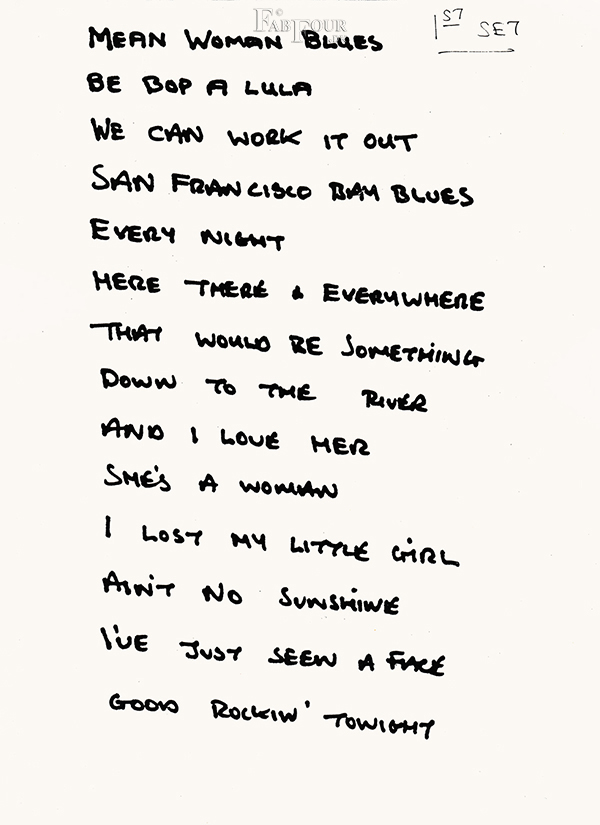 FAB FOUR
1ST SET
MEAN WOMAN BLUES
BE BOP A LULA
WE CAN WORK IT OUT
SAN FRANCISCO BAY BLUES
EVERY NIGHT
HERE THERE & EVERYWHERE
THAT WOULD BE SOMETHING
DOWN TO THE RIVER
AND I LOVE HER
SHE'S A WOMAN
I LOST MY LITTLE GIRL
AIN'T NO SUNSHINE
I'VE JUST SEEN A FACE
GOOD ROCKIN' TONIGHT